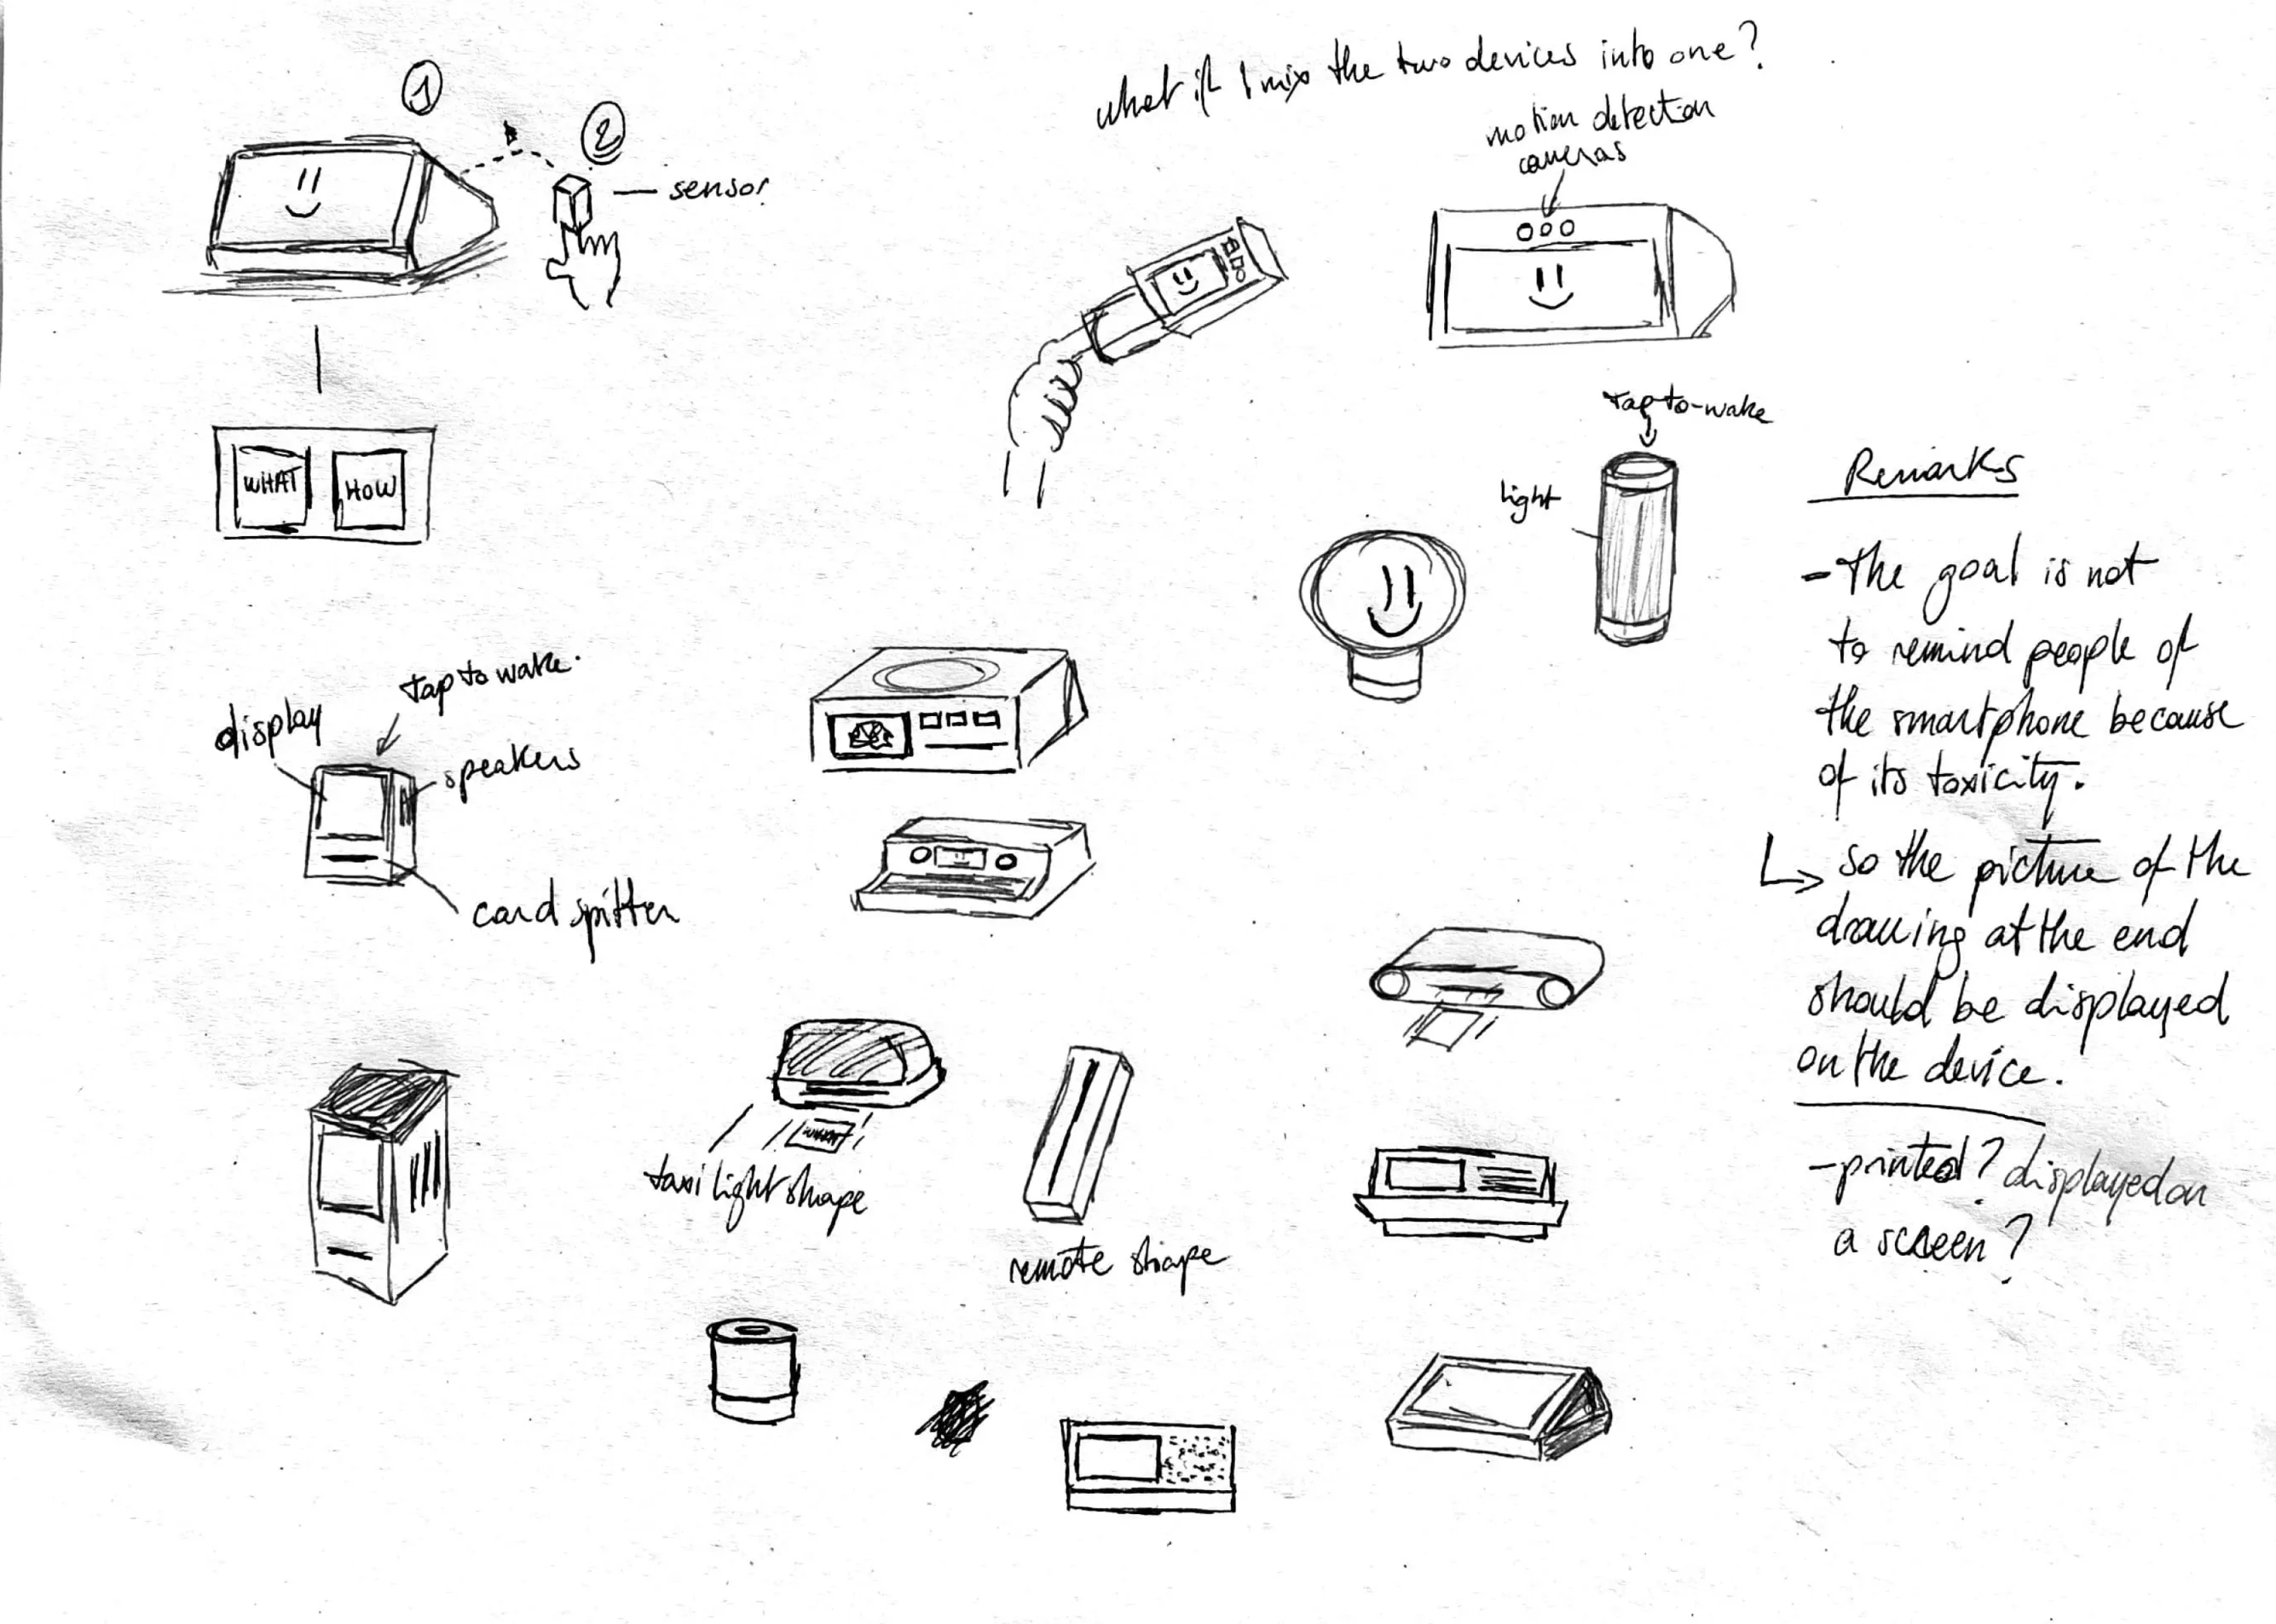 1
2
sensor
what if I mix the two devices into one?
motion detection
cameras
WHAT
HOW
tap-to-wake
light
display
tap to wake.
speakers
card spitter
taxi light shape
remote shape
Remarks
- the goal is not
to remind people of
the smartphone because
of its toxicity.
↳ so the picture of the
drawing at the end
should be displayed
on the device.
- printed? displayed on
a screen?